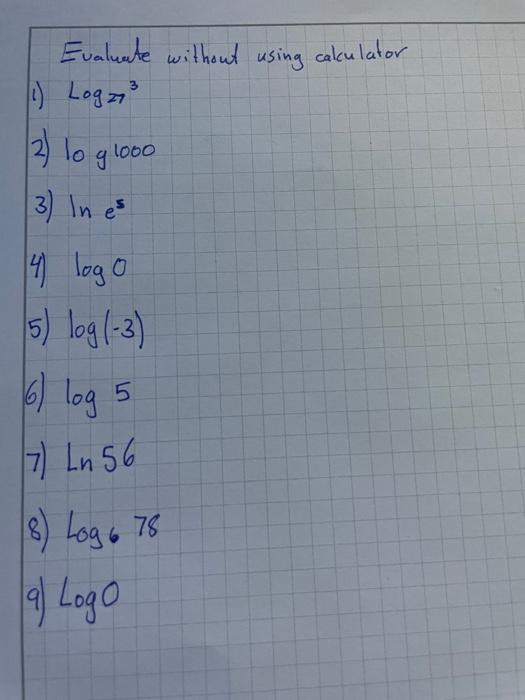 Evaluate without using calculator
1) Log₂₇³
2) log1000
3) ln e⁵
4) log 0
5) log(-3)
6) log 5
7) Ln 56
8) Log₆ 78
9) Log 0